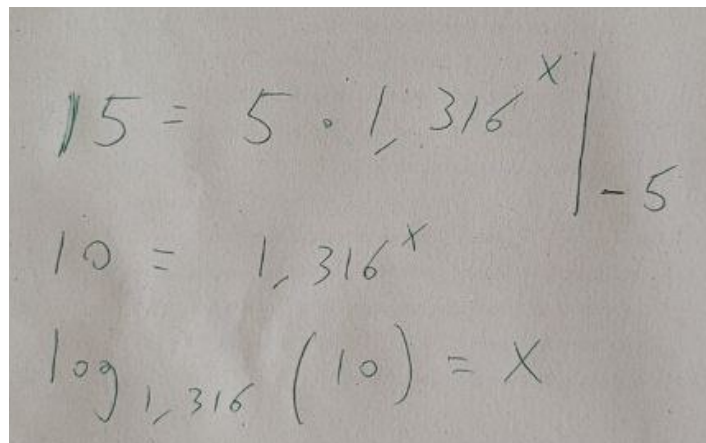 15 = 5 · 1,316^x | -5
10 = 1,316^x
log_{1,316} (10) = x